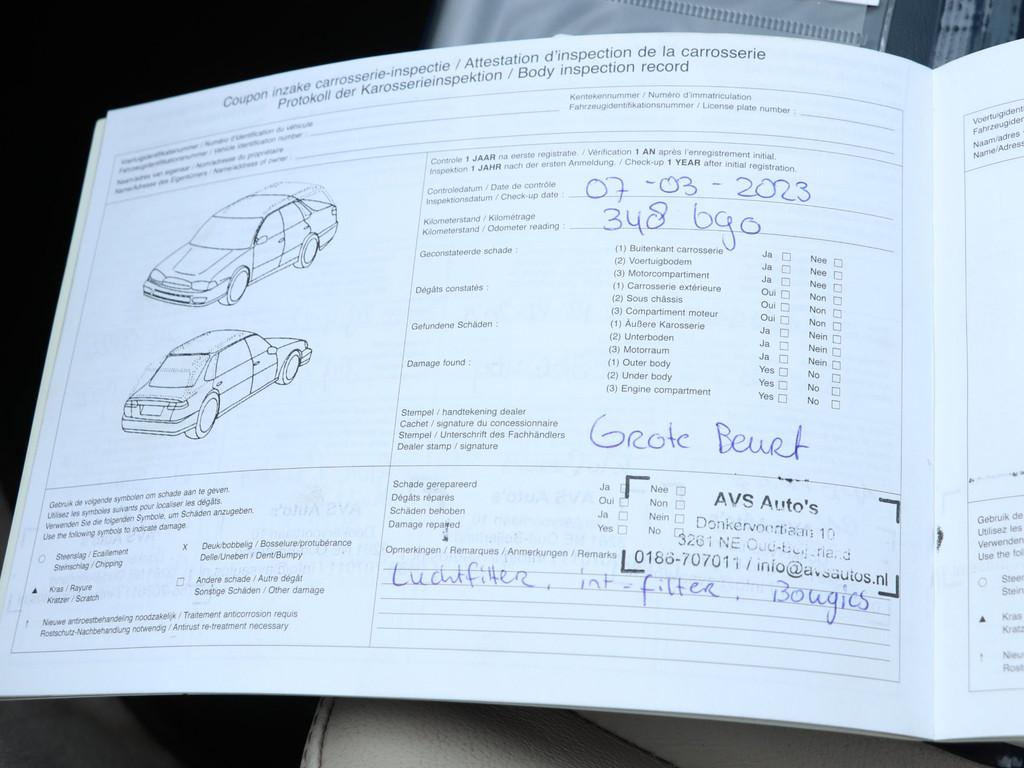 Coupon inzake carrosserie-inspectie / Attestation d'inspection de la carrosserie
Protokoll der Karosserieinspektion / Body inspection record
Voertuigidentificatienummer / Numéro d'identification du véhicule
Fahrzeugidentifikationsnummer / Vehicle identification number :
Naam/adres van eigenaar / Nom/adresse du propriétaire
Name/Adresse des Eigentümers / Name/address of owner :
Kentekennummer / Numéro d'immatriculation
Fahrzeugidentifikationsnummer / License plate number :
Controle 1 JAAR na eerste registratie. / Vérification 1 AN après l'enregistrement initial.
Inspektion 1 JAHR nach der ersten Anmeldung. / Check-up 1 YEAR after initial registration.
Controledatum / Date de contrôle
Inspektionsdatum / Check-up date :
07-03-2023
Kilometerstand / Kilométrage
Kilometerstand / Odometer reading :
348 690
Geconstateerde schade :
(1) Buitenkant carrosserie Ja Nee
(2) Voertuigbodem Ja Nee
(3) Motorcompartiment Ja Nee
Dégâts constatés :
(1) Carrosserie extérieure Oui Non
(2) Sous châssis Oui Non
(3) Compartiment moteur Oui Non
Gefundene Schäden :
(1) Äußere Karosserie Ja Nein
(2) Unterboden Ja Nein
(3) Motorraum Ja Nein
Damage found :
(1) Outer body Yes No
(2) Under body Yes No
(3) Engine compartment Yes No
Stempel / handtekening dealer
Cachet / signature du concessionnaire
Stempel / Unterschrift des Fachhändlers
Dealer stamp / signature
Grote Beurt
Gebruik de volgende symbolen om schade aan te geven.
Utilisez les symboles suivants pour localiser les dégâts.
Verwenden Sie die folgenden Symbole, um Schäden anzugeben.
Use the following symbols to indicate damage.
○ Steenslag / Ecaillement
Steinschlag / Chipping
X Deuk/bobbelig / Bosselure/protubérance
Delle/Uneben / Dent/Bumpy
▲ Kras / Rayure
Kratzer / Scratch
□ Andere schade / Autre dégât
Sonstige Schäden / Other damage
↑ Nieuwe antiroestbehandeling noodzakelijk / Traitement anticorrosion requis
Rostschutz-Nachbehandlung notwendig / Antirust re-treatment necessary
Schade gerepareerd Ja Nee
Dégâts réparés Oui Non
Schäden behoben Ja Nein
Damage repaired Yes No
AVS Auto's
Donkervoortlaan 10
3261 NE Oud-Beijerland
0186-707011 / info@avsautos.nl
Opmerkingen / Remarques / Anmerkungen / Remarks
Luchtfilter, int-filter, Bougies
Voertuigident
Fahrzeugiden
Naam/adres
Name/Adress
Gebruik de
Utilisez les
Verwenden
Use the foll
○ Steen
Stein
▲ Kras
Kratz
↑ Nieu
Rost